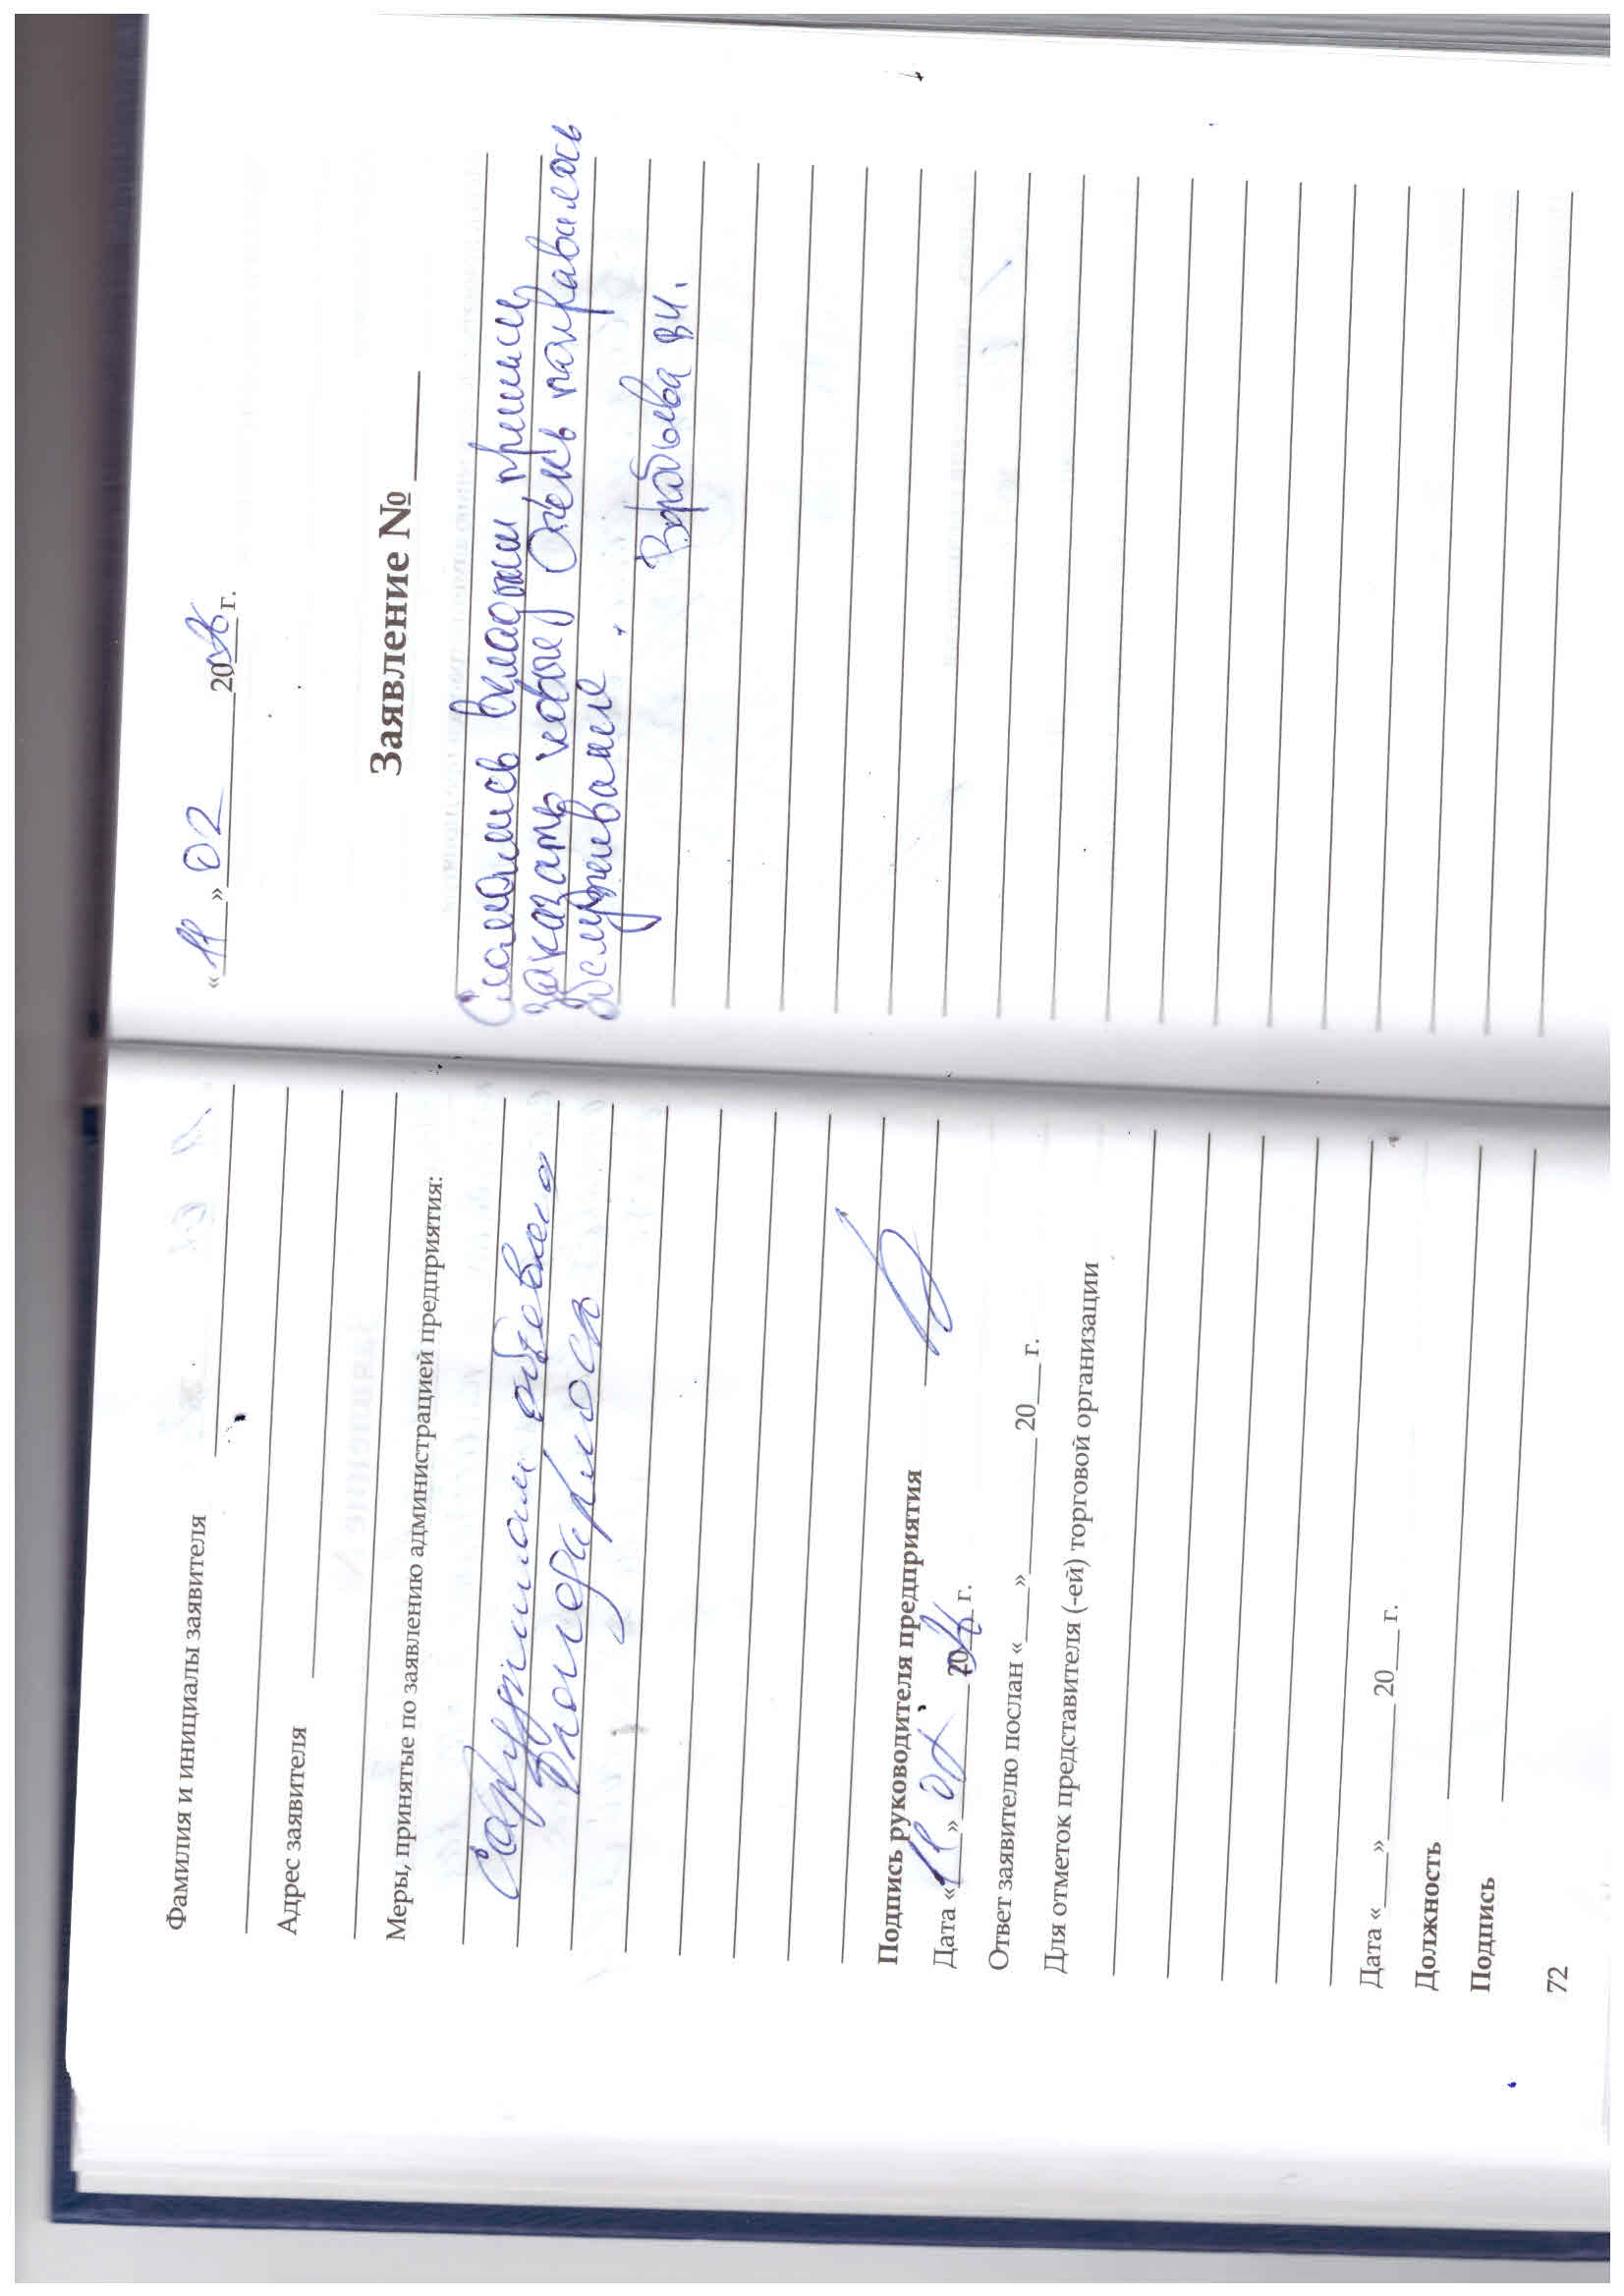 Фамилия и инициалы заявителя
Адрес заявителя
Меры, принятые по заявлению администрацией предприятия:
объявлена
благодарность
Подпись руководителя предприятия
Дата «11» 02 20 г.
Ответ заявителю послан «___»________20___г.
Для отметок представителя (-ей) торговой организации
Дата «____»________ 20___ г.
Должность
Подпись
72
«11» 02 20 г.
Заявление № ____
Сломались вкладыши пришли
заказать новые Очень понравилось
обслуживание.
Воробьева В.И.